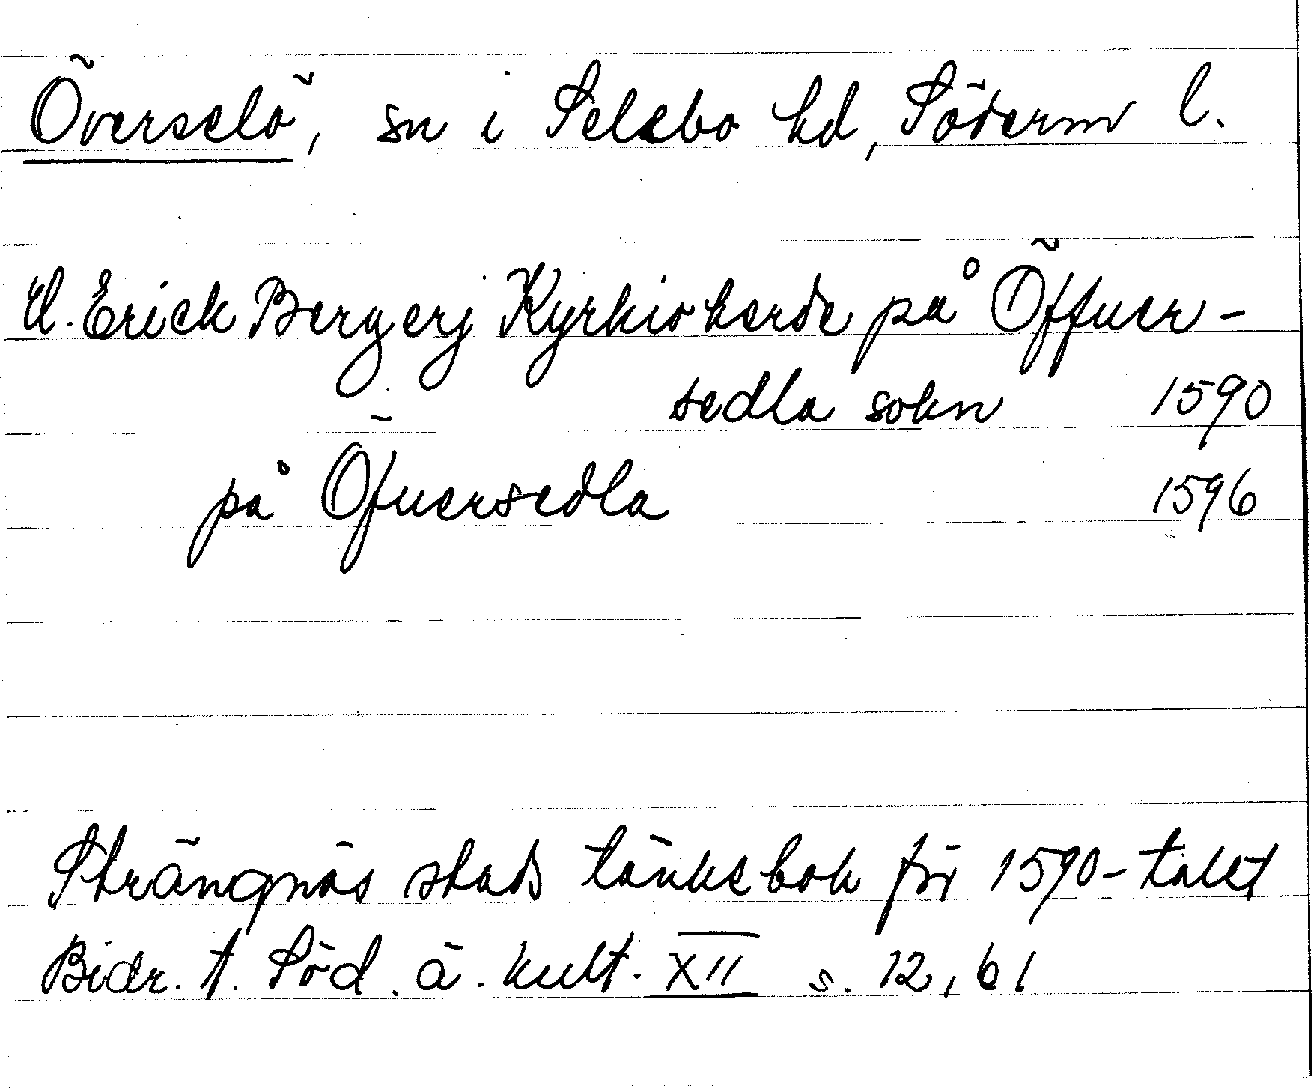 Överselö, sn i Selebo hd, Söderm l.
H. Erick Bergerj Kyrkioherde på Öffuer-
sedla sokn 1590
på Öfuersedla 1596
Strängnäs stads tänkebok för 1590-talet
Bidr. t. Söd. ä. kult. XII s. 12, 61